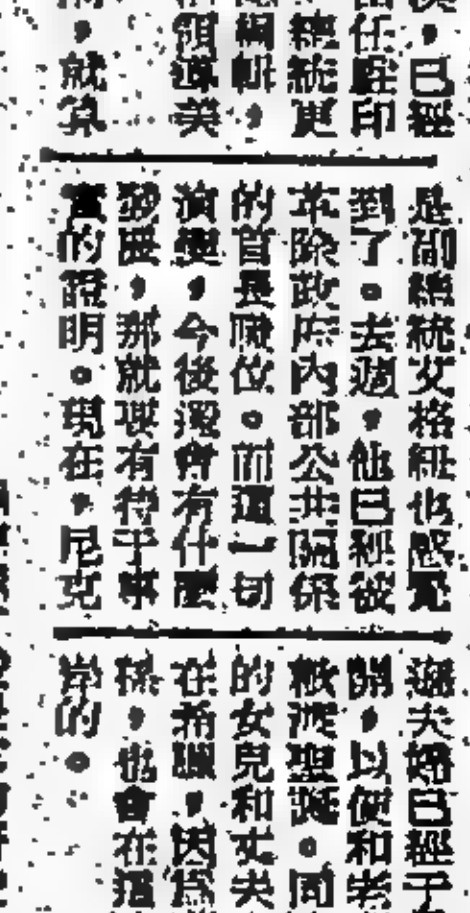 ，已經
任駐印
總統更
編輯，
領導美
，就算
是副總統艾格紐也感
到了。去週，他已經被
革除政府內部公共關係
的首長職位。而這一切
演變，今後還會有什麼
發展，那就要有待于事
實的證明。現在，尼克
夫婦已經于
開，以便和老
歡渡聖誕。同
的女兒和丈夫
在希臘，因為
，也會在這
岸的。